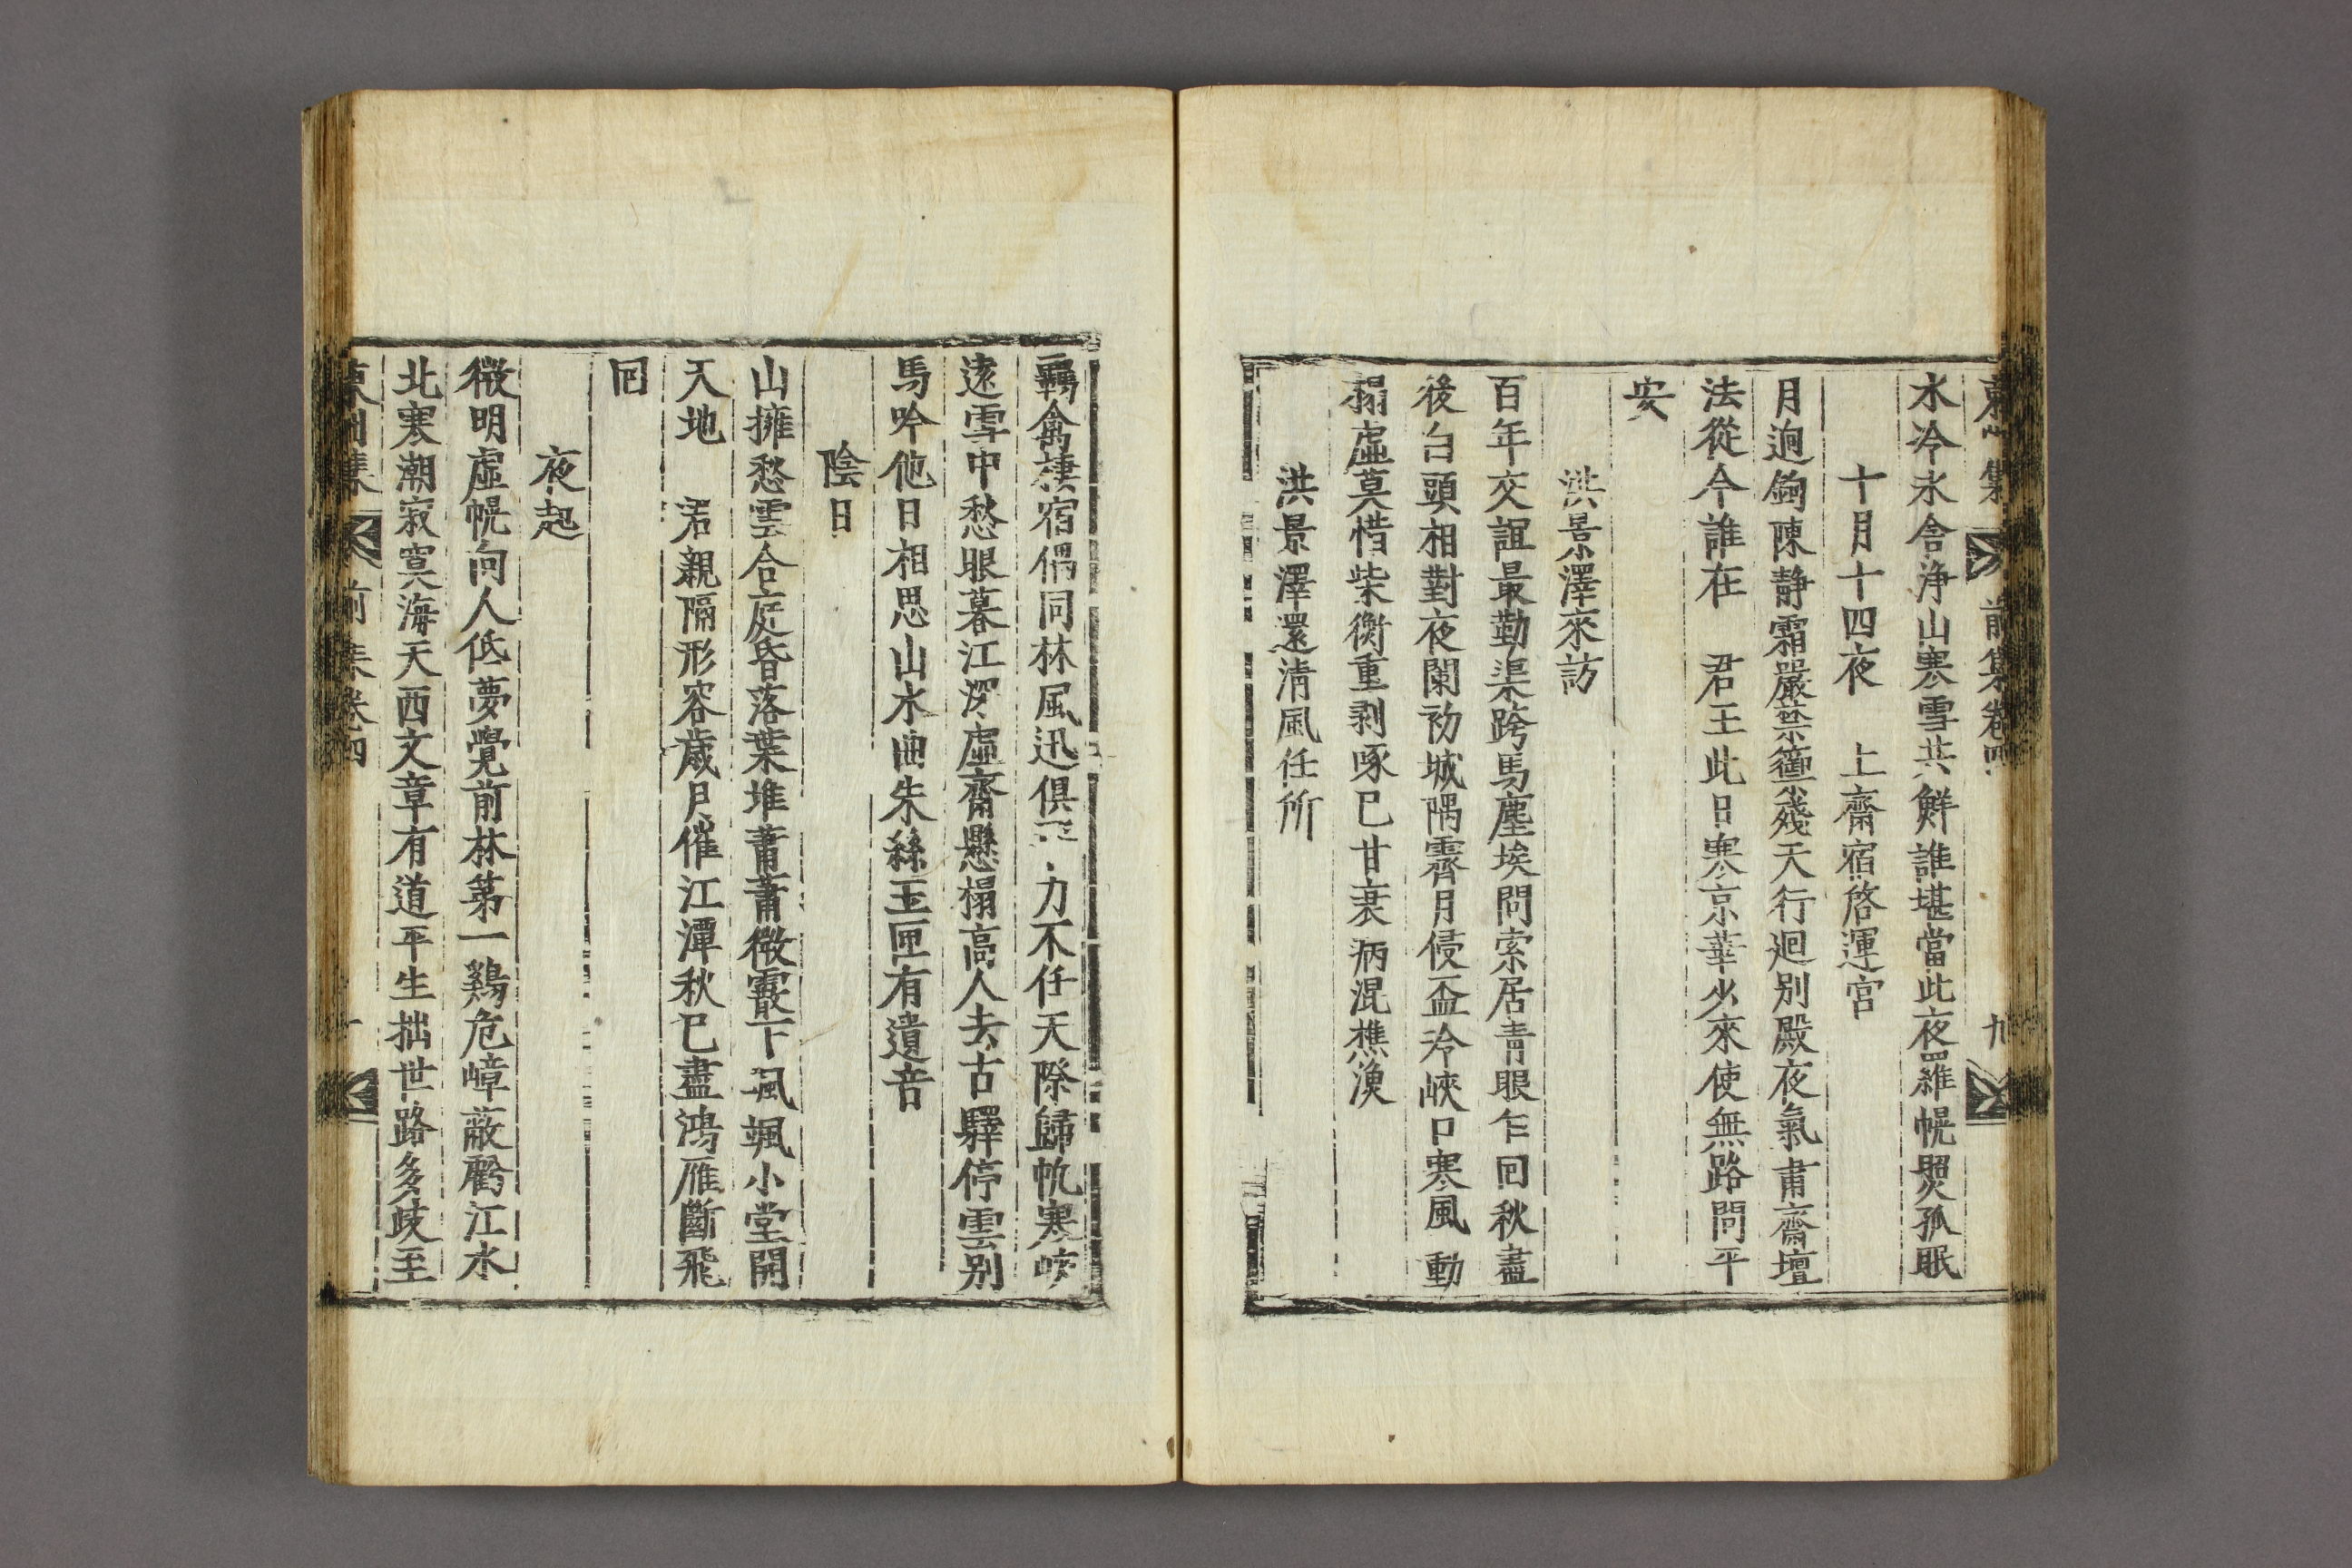 東州集 前集卷四 九
水冷氷含淨山寒雪共鮮誰堪當此夜羅幌照孤眠
十月十四夜 上齋宿啓運宮
月迥鉤陳靜霜嚴禁籞殘天行迴別殿夜氣肅齋壇
法從今誰在 君王此日寒京華少來使無路問平
安
洪景澤來訪
百年交誼最勤渠跨馬塵埃問索居靑眼乍回秋盡
後白頭相對夜闌初城隅霽月侵盃冷峽口寒風動
榻虛莫惜柴衡重剥啄已甘衰病混樵漁
洪景澤還淸風任所
羈禽棲宿偶同林風迅俱 力不任天際歸帆寒峽
遠雪中愁眼暮江深虛齋懸榻高人去古驛停雲別
馬吟他日相思山水曲朱絲玉匣有遺音
陰日
山擁愁雲合庭昏落葉堆蕭蕭微霰下颯颯小堂開
天地 君親隔形容歲月催江潭秋已盡鴻雁斷飛
回
夜起
微明虛幌向人低夢覺前林第一鷄危嶂蔽虧江水
北寒潮寂寞海天西文章有道平生拙世路多歧至
東州集 前集卷四 十